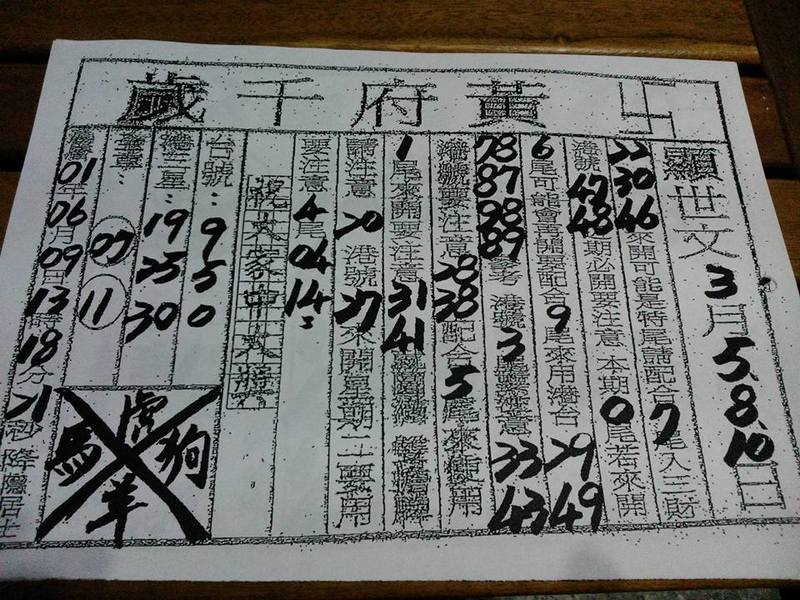 黃府千歲
顯世文3月5.8.10日
22 30 46來開可能是特尾請配合7尾入三財
港號47 48本期必開要注意 本期0尾若來開
6尾可能會再開要配合9尾來用港台29 49
78 87 98 89參考 港號3 33 43
港號要注意28 38配合5尾來使用
1尾來開要注意31 41
請注意20港號27來開星期二要用
要注意4尾04 14
祝大家中大獎
台號：9 5 0
港三星：19 25 30
07 11
01年06月09日13時18分21秒降隱居士
虎 馬 狗 羊